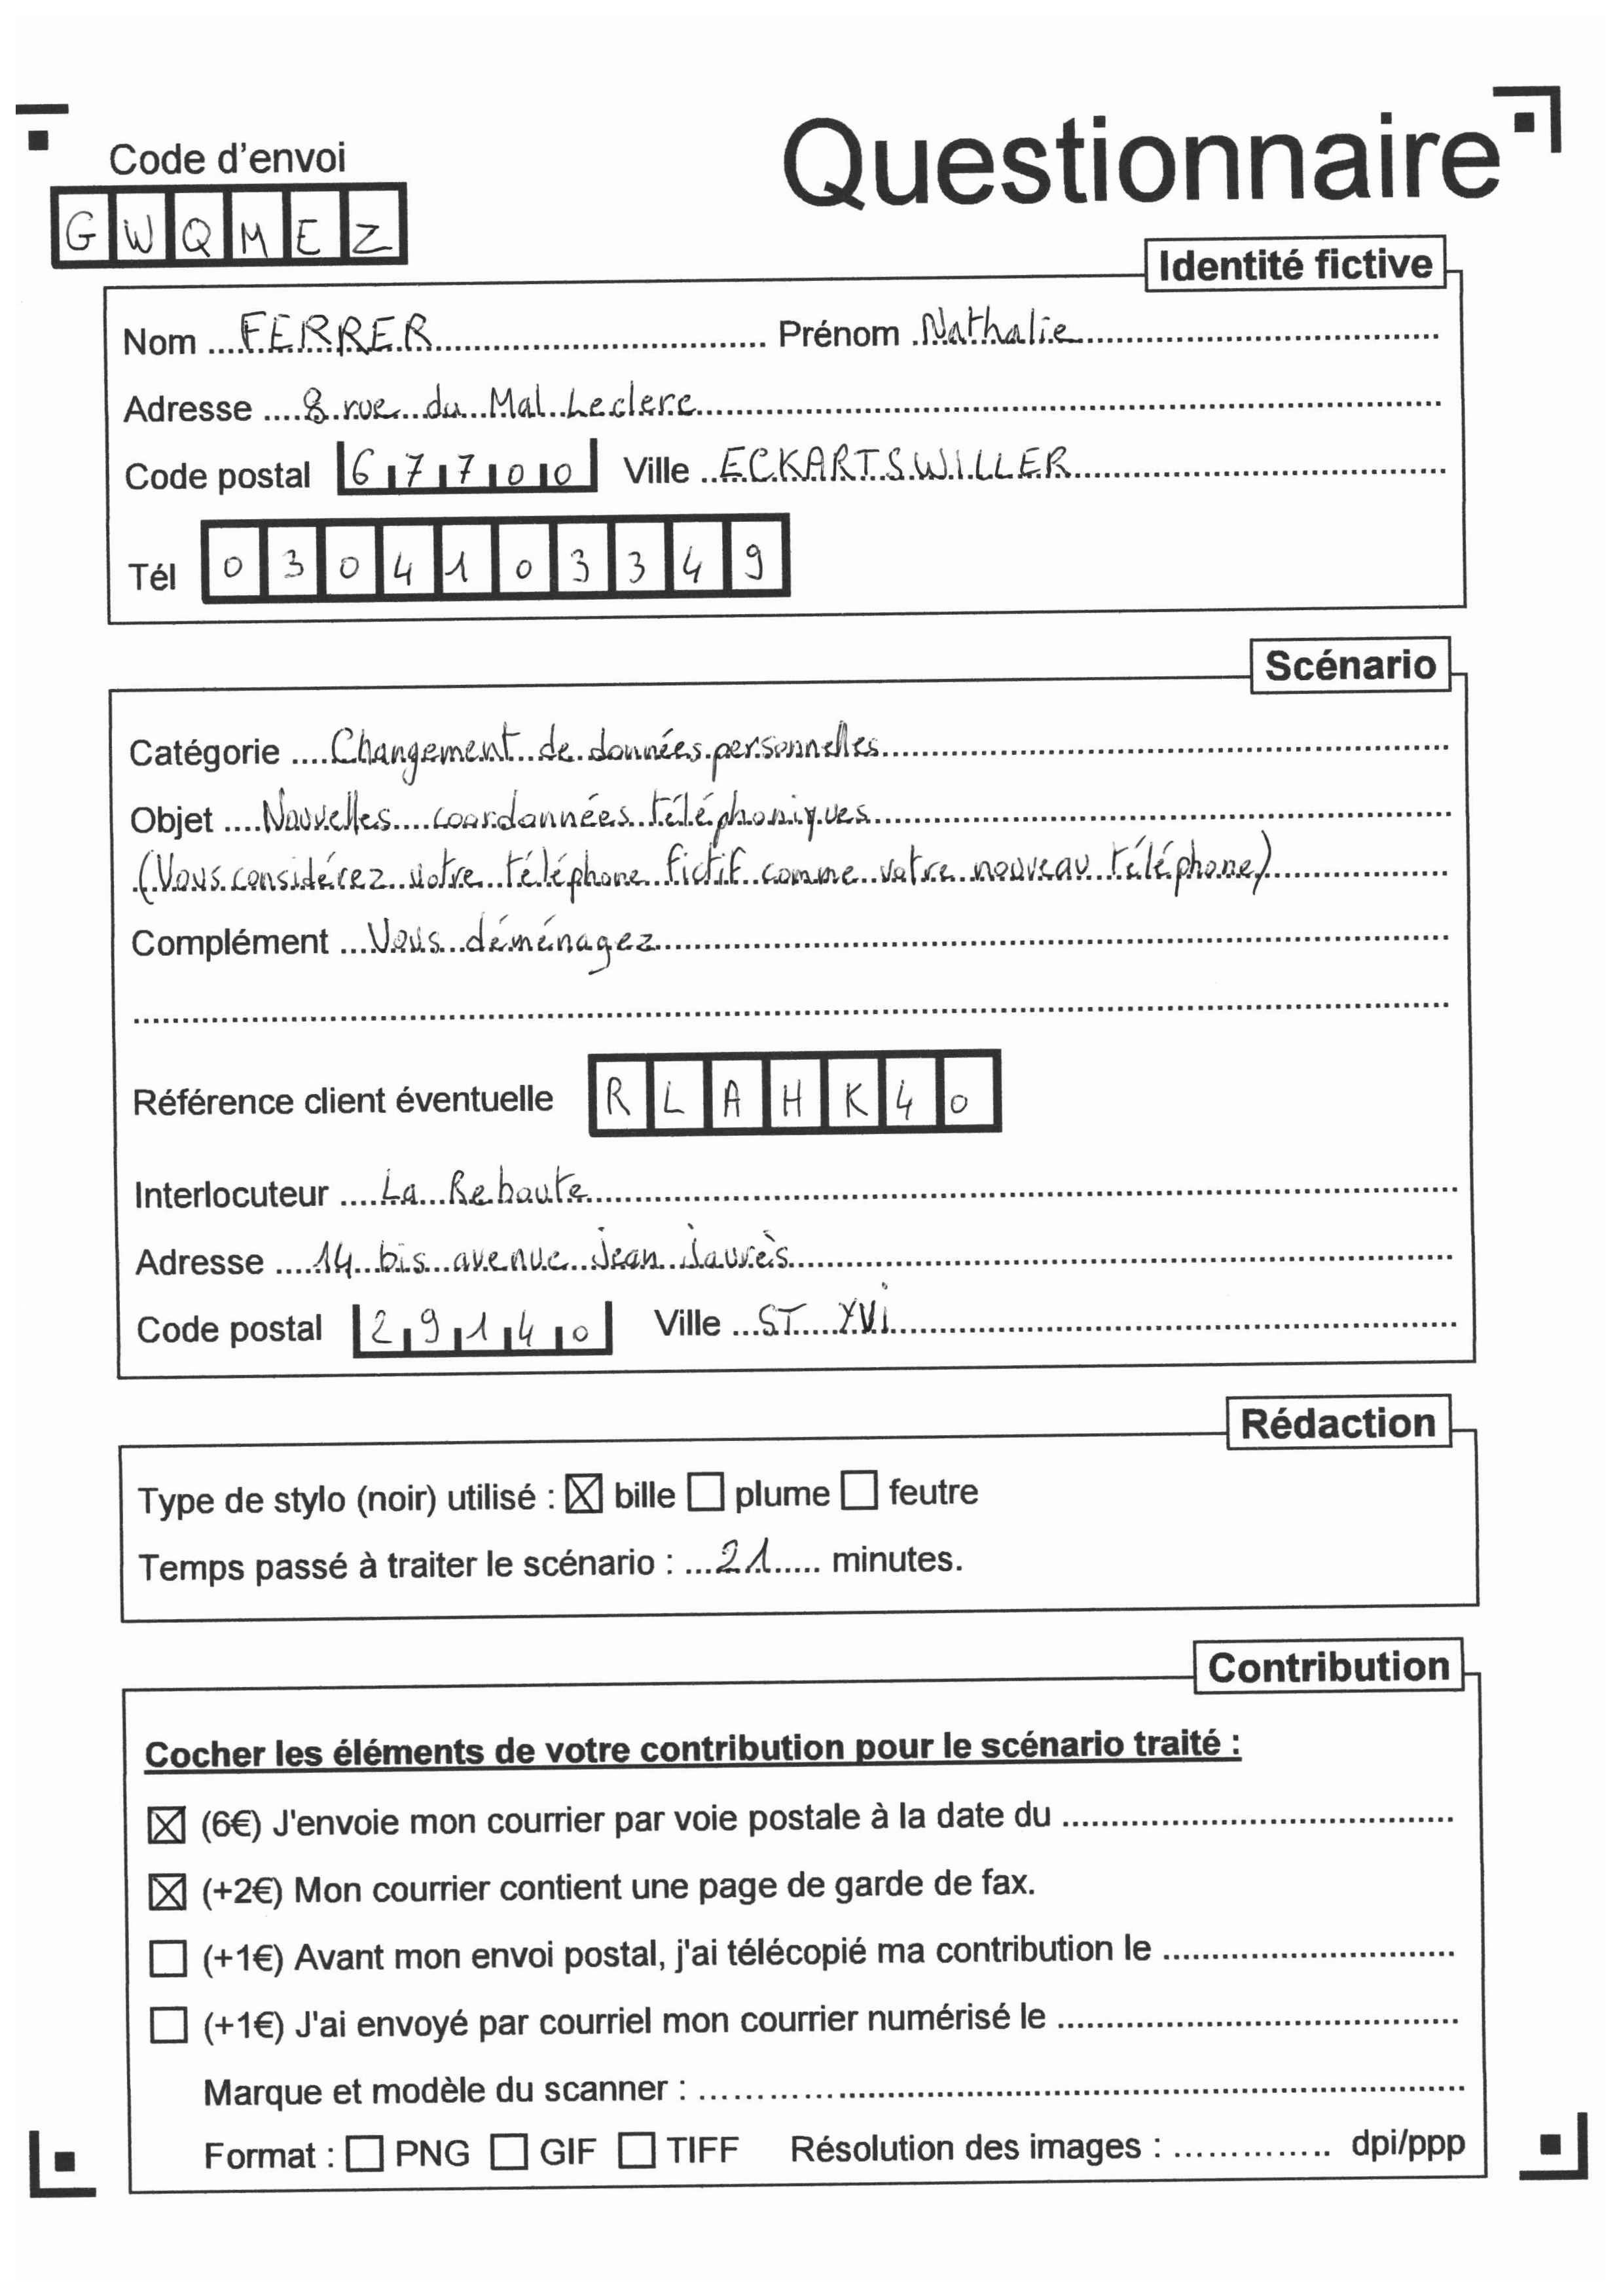 Code d'envoi
Questionnaire
GWQMEZ
Identité fictive
Nom FERRER Prénom Nathalie
Adresse 8 rue du Mal Leclerc
Code postal 67700 Ville ECKARTSWILLER
Tél 0304103349
Scénario
Catégorie Changement de données personnelles
Objet Nouvelles coordonnées téléphoniques
(Vous considérez votre téléphone fictif comme votre nouveau téléphone)
Complément Vous déménagez
Référence client éventuelle RLAHK40
Interlocuteur La Reboute
Adresse 14 bis avenue Jean Jaurès
Code postal 29140 Ville ST YVi
Rédaction
Type de stylo (noir) utilisé : ☒ bille ☐ plume ☐ feutre
Temps passé à traiter le scénario : 21 minutes.
Contribution
Cocher les éléments de votre contribution pour le scénario traité :
☒ (6€) J'envoie mon courrier par voie postale à la date du
☒ (+2€) Mon courrier contient une page de garde de fax.
☐ (+1€) Avant mon envoi postal, j'ai télécopié ma contribution le
☐ (+1€) J'ai envoyé par courriel mon courrier numérisé le
Marque et modèle du scanner :
Format : ☐ PNG ☐ GIF ☐ TIFF Résolution des images : dpi/ppp